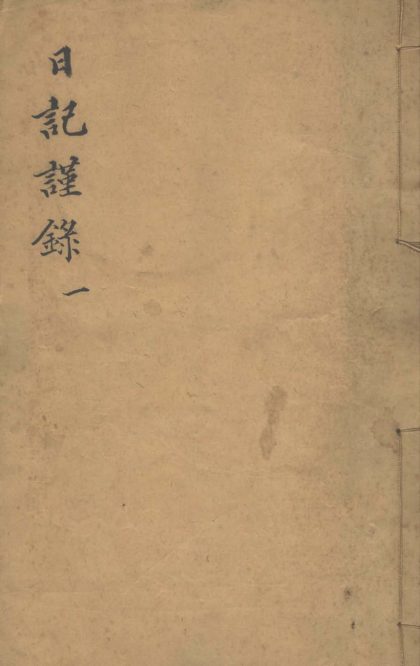 日記謹錄 一